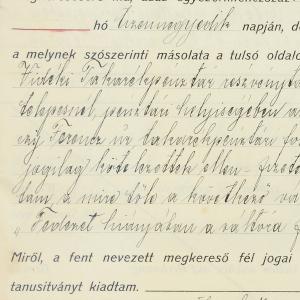 hó tizennegyedik napján, de
a melynek szószerinti másolata a tulsó oldalo
Vidéki Takarékpénztár részvényt
telepesnél, pénztári helyiségében a
Ferencz úr takarékpénztári fő
jogilag kötelezettek ellen – fizeté
tam, a mire tőle a következő vá
„Fedezet hiányában a váltóra f
Miről, a fent nevezett megkereső fél jogai
tanusitványt kiadtam.